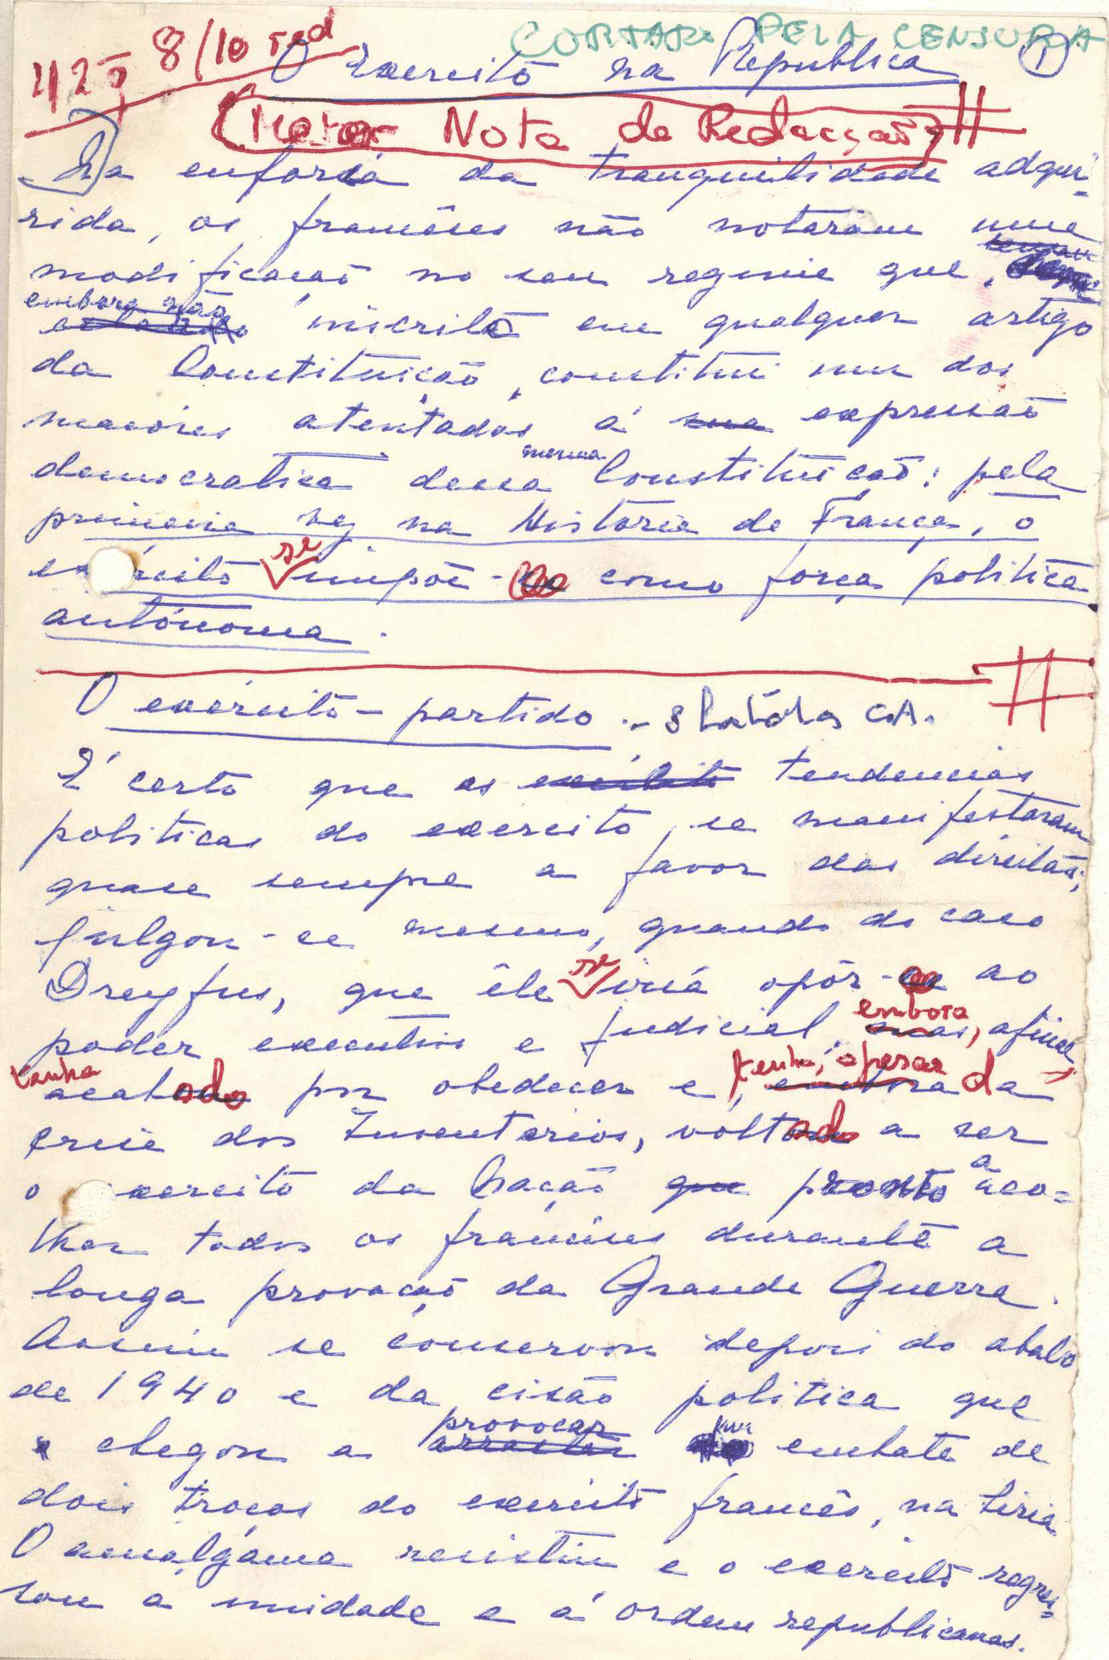 CORTAR PELA CENSURA
425 8/10 red O exercito na Republica 1
Nota da Redacção
Na euforia da tranquilidade adqui-
rida, os francêses não notaram uma
modificação no seu regime que,
embora não inscrita em qualquer artigo
da Constituição, constitui um dos
maiores atentados á sua expressão
democratica dessa mesma Constituição: pela
primeira vez na História de França, o
exército se impõe-se como força politica
autónoma.
O exército-partido. - 3 C.A.
É certo que as tendencias
politicas do exercito, se manifestaram
quase sempre a favor das direitas;
julgou-se mesmo, quando do caso
Dreyfus, que êle se iria opôr-se ao
poder executivo e judicial, mas, embora, afinal,
tenha acabado por obedecer e, embora tenha, apesar da
crise dos Inventarios, voltado a ser
o exercito da Nação que pronto a aco-
lher todos os francêses durante a
longa provação da Grande Guerra.
Assim se conservou depois do abalo
de 1940 e da cisão politica que
chegou a provocar um embate de
dois troços do exercito francês, na Siria.
O amálgama resistiu e o exercito regres-
sou á unidade e á ordem republicanas.